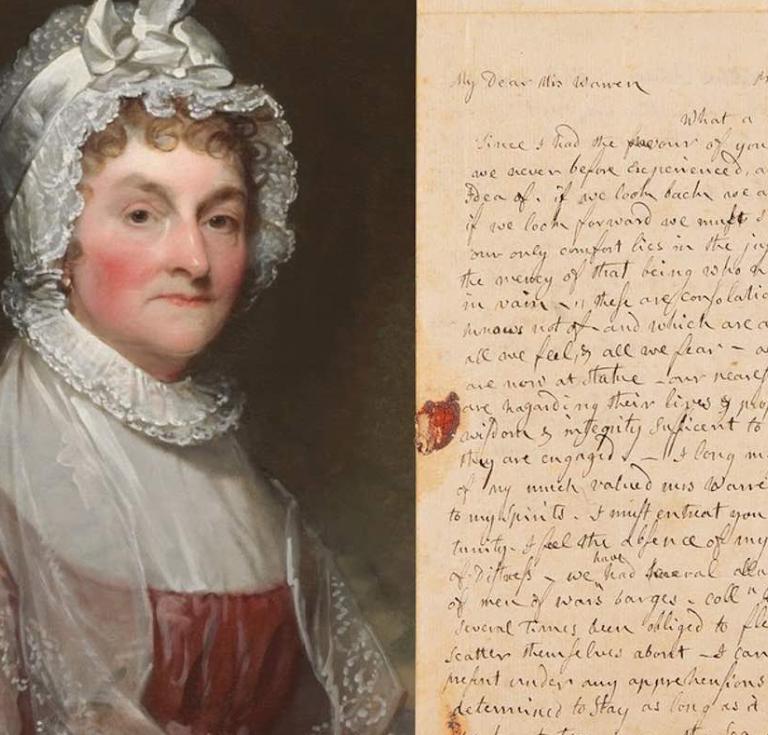 My Dear Mrs Warren
What a
Since I had the favour of you
we never before Experienced, a
Idea of. if we look back we a
if we look forward we must s
our only comfort lies in the ju
the mercy of that being who n
in vain these are consolatio
knows not of and which are a
all we feel, & all we fear - a
are now at Stake - our neares
are hazarding their lives & prop
wisdom & integrity Sufficent to
they are engaged. - I long m
of my much valued mrs Warre
to my Spirits. I must entreat you
tunity. I feel the absence of my
of Distress - we have had Several alla
of men of wars barges - coll
Several Times been obliged to fle
Scatter themselves about - I can
present under any apprehensions
determined to Stay as long as